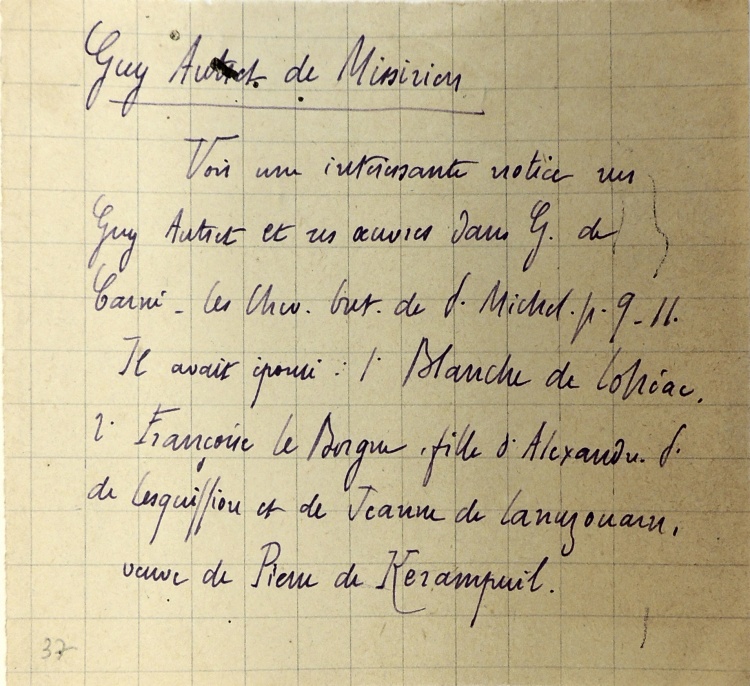 Guy Autret de Missirien
Voir une intéressante notice sur
Guy Autret et ses œuvres dans G. de
Carné - les Chev. bret. de S. Michel. p. 9-11.
Il avait épousé : 1° Blanche de Lohéac,
2° Françoise le Borgne, fille d'Alexandre S.
de Lesquiffiou et de Jeanne de Lanuzouarn,
veuve de Pierre de Kerampuil.
37